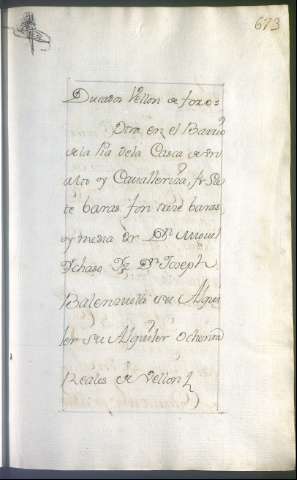 673
Ducados Vellon de foro =
Otra en el Barrio
de la Pia dela Casca de un
alto y Cavalleriza, fr. Sie
te baras fon nuebe baras
y media Dr. Dn. Miguel
Ychaso Y Dn. Joseph
Balenzuela su Alqui
ler su Alquiler ochenta
Reales de Vellon